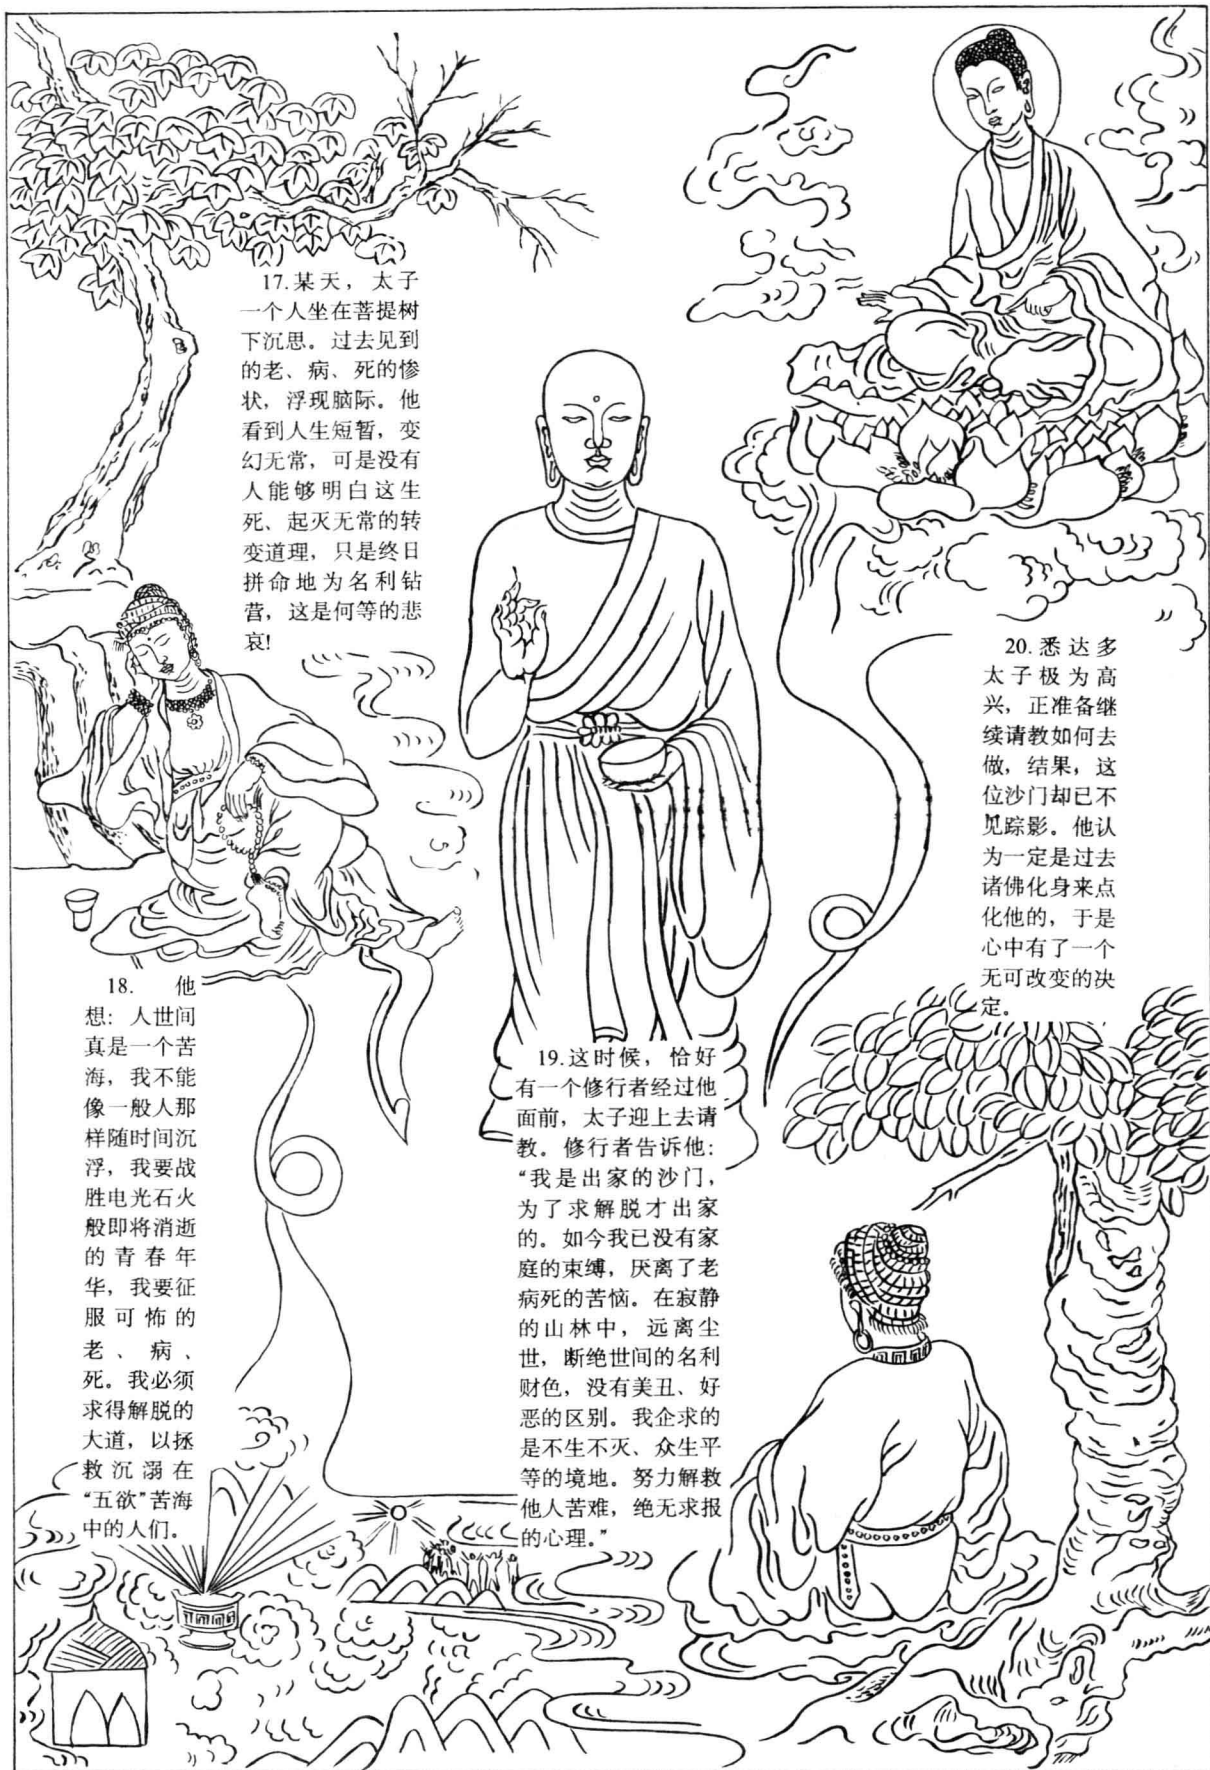 17.某天，太子
一个人坐在菩提树
下沉思。过去见到
的老、病、死的惨
状，浮现脑际。他
看到人生短暂，变
幻无常，可是没有
人能够明白这生
死、起灭无常的转
变道理，只是终日
拼命地为名利钻
营，这是何等的悲
哀!
18. 他
想：人世间
真是一个苦
海，我不能
像一般人那
样随时间沉
浮，我要战
胜电光石火
般即将消逝
的青春年
华，我要征
服可怖的
老、病、
死。我必须
求得解脱的
大道，以拯
救沉溺在
“五欲”苦海
中的人们。
19.这时候，恰好
有一个修行者经过他
面前，太子迎上去请
教。修行者告诉他：
“我是出家的沙门，
为了求解脱才出家
的。如今我已没有家
庭的束缚，厌离了老
病死的苦恼。在寂静
的山林中，远离尘
世，断绝世间的名利
财色，没有美丑、好
恶的区别。我企求的
是不生不灭、众生平
等的境地。努力解救
他人苦难，绝无求报
的心理。”
20.悉达多
太子极为高
兴，正准备继
续请教如何去
做，结果，这
位沙门却已不
见踪影。他认
为一定是过去
诸佛化身来点
化他的，于是
心中有了一个
无可改变的决
定。